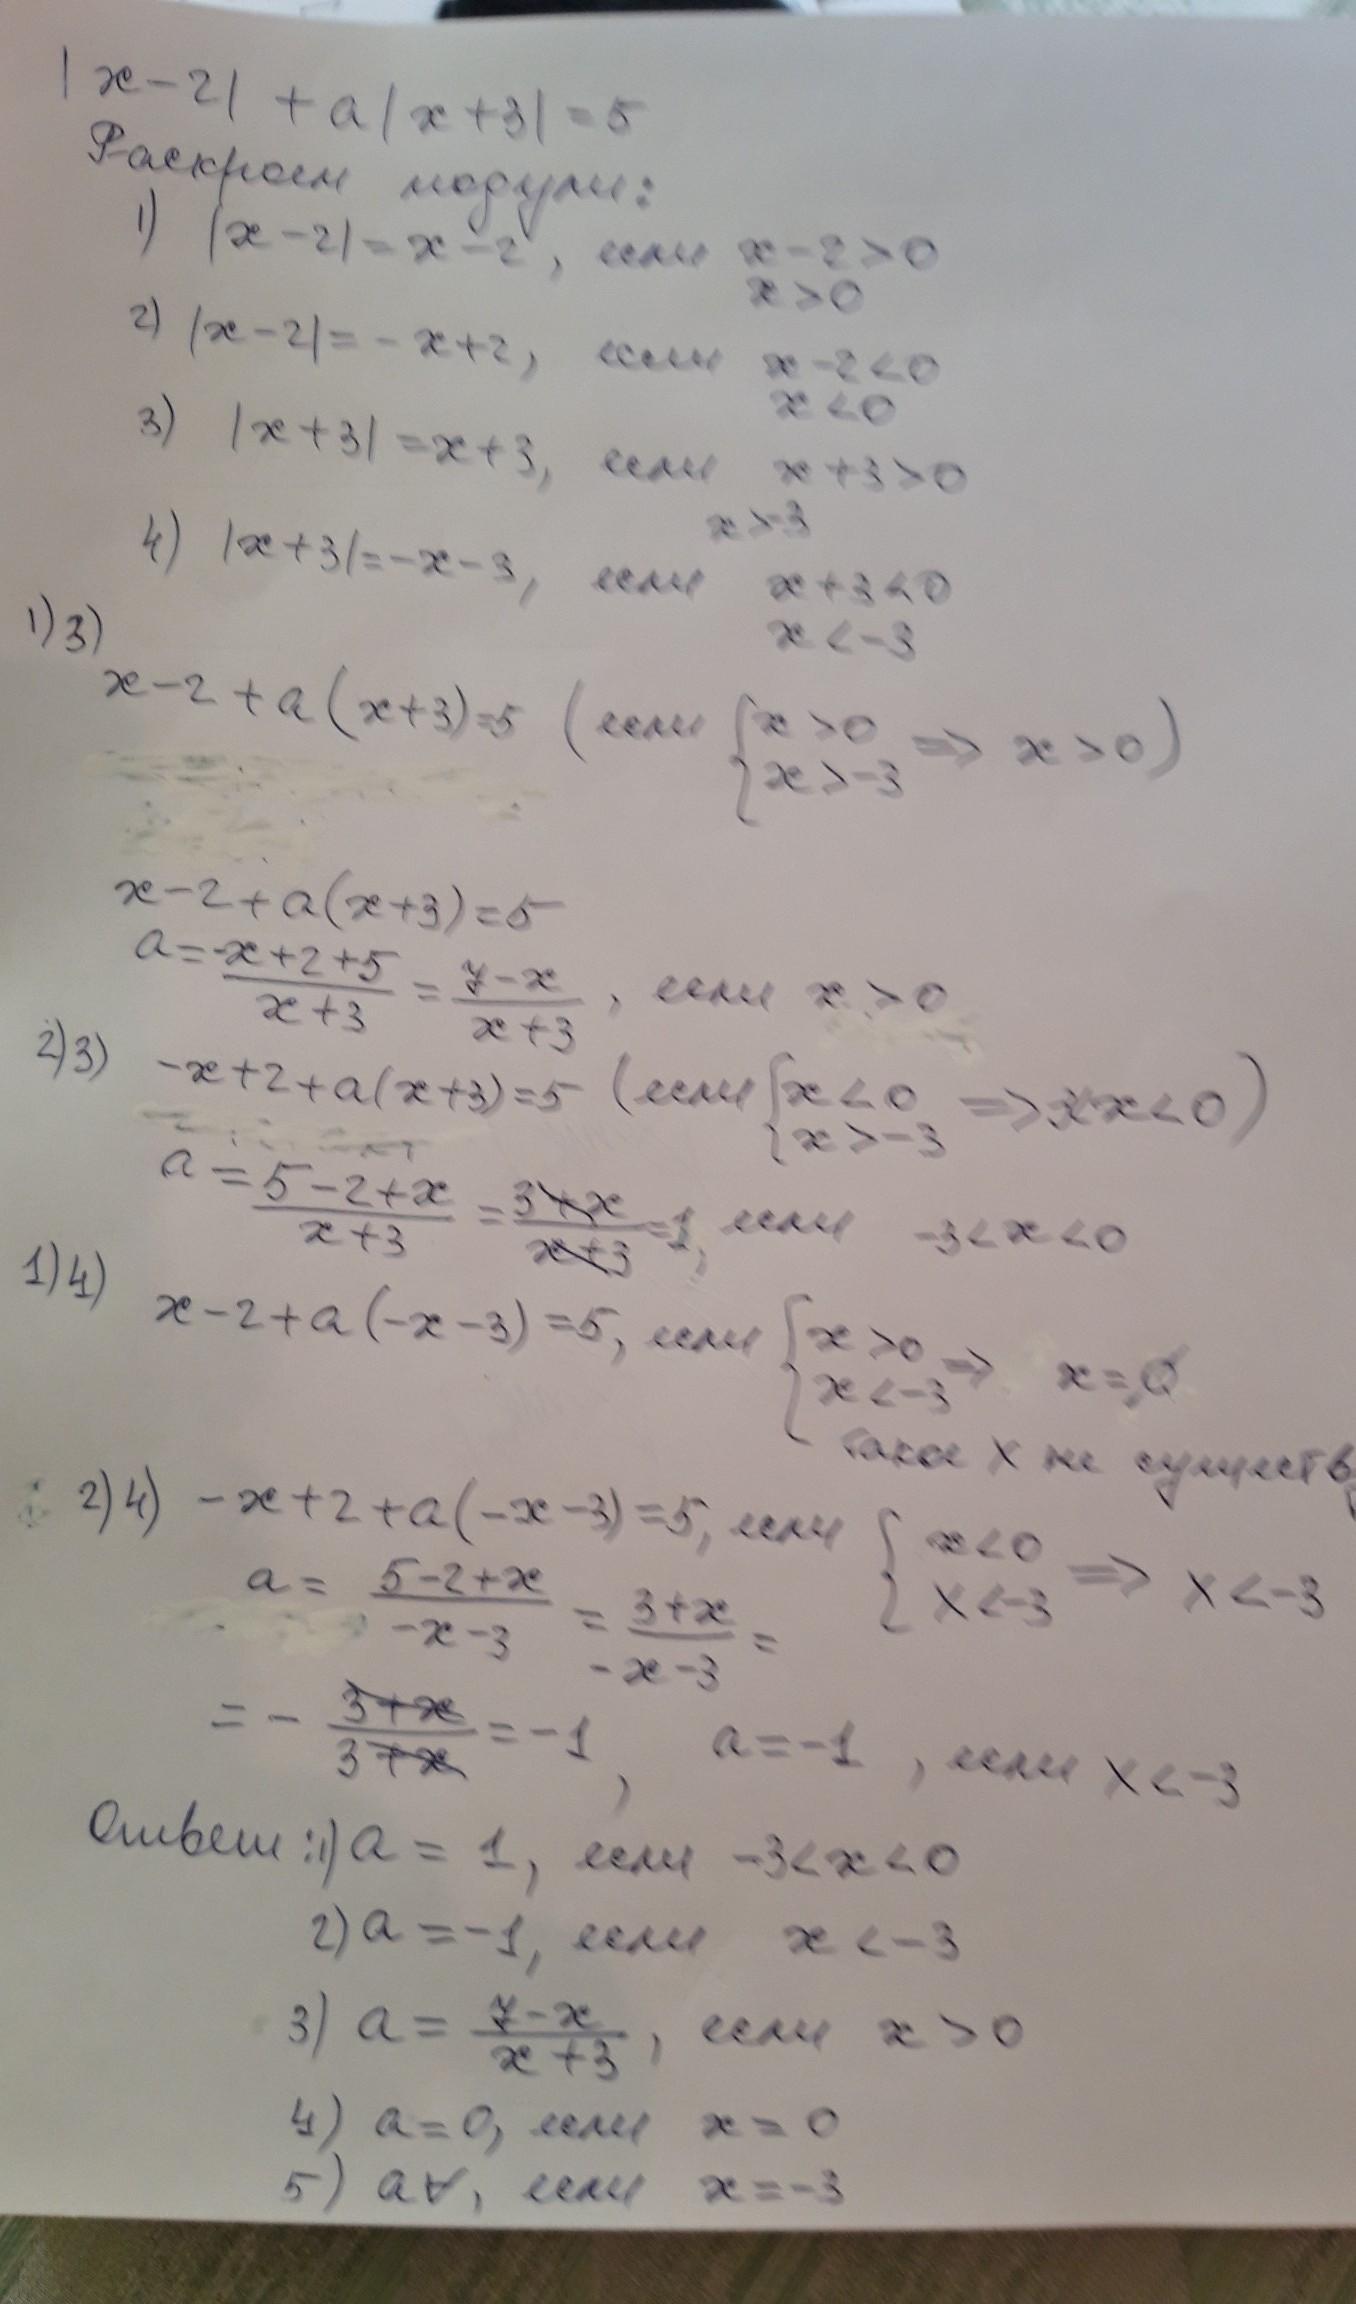 |x-2| + a|x+3| = 5
Раскроем модули:
1) |x-2| = x-2, если x-2>0
x>0
2) |x-2| = -x+2, если x-2<0
x<0
3) |x+3| = x+3, если x+3>0
x>-3
4) |x+3| = -x-3, если x+3<0
x<-3
1)3)
x-2+a(x+3)=5 (если {x>0 x>-3 => x>0)
x-2+a(x+3)=5
a = (-x+2+5)/(x+3) = (7-x)/(x+3), если x>0
2)3) -x+2+a(x+3)=5 (если {x<0 x>-3 => x<0)
a = (5-2+x)/(x+3) = (3+x)/(x+3) = 1, если -3<x<0
1)4) x-2+a(-x-3)=5, если {x>0 x<-3 => x=∅
такое x не существ
2)4) -x+2+a(-x-3)=5, если {x<0 x<-3 => x<-3
a = (5-2+x)/(-x-3) = (3+x)/(-x-3) =
= - (3+x)/(3+x) = -1, a=-1, если x<-3
Ответ: 1) a = 1, если -3<x<0
2) a = -1, если x<-3
3) a = (7-x)/(x+3), если x>0
4) a=0, если x=0
5) a∀, если x=-3